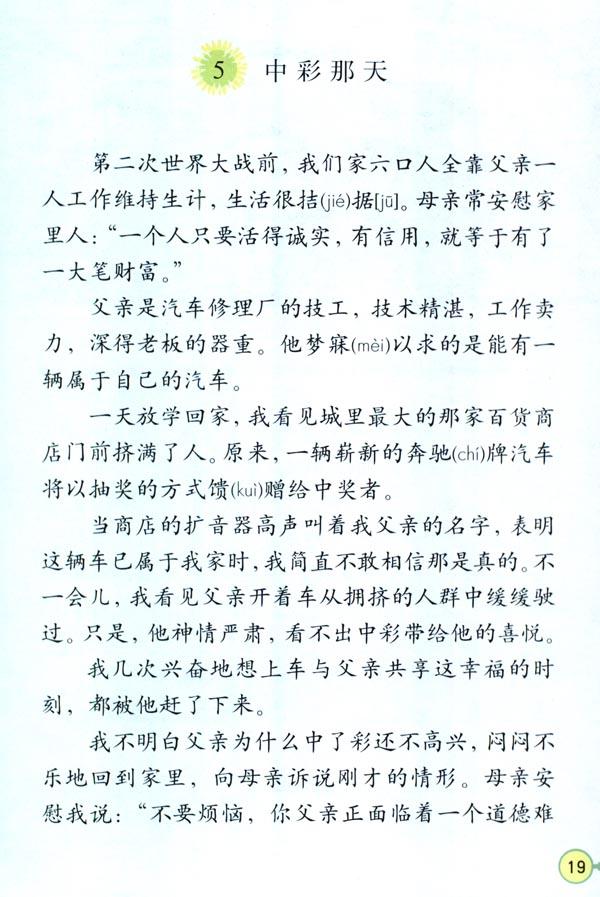 5 中彩那天
第二次世界大战前，我们家六口人全靠父亲一
人工作维持生计，生活很拮(jié)据[jū]。母亲常安慰家
里人：“一个人只要活得诚实，有信用，就等于有了
一大笔财富。”
父亲是汽车修理厂的技工，技术精湛，工作卖
力，深得老板的器重。他梦寐(mèi)以求的是能有一
辆属于自己的汽车。
一天放学回家，我看见城里最大的那家百货商
店门前挤满了人。原来，一辆崭新的奔驰(chí)牌汽车
将以抽奖的方式馈(kuì)赠给中奖者。
当商店的扩音器高声叫着我父亲的名字，表明
这辆车已属于我家时，我简直不敢相信那是真的。不
一会儿，我看见父亲开着车从拥挤的人群中缓缓驶
过。只是，他神情严肃，看不出中彩带给他的喜悦。
我几次兴奋地想上车与父亲共享这幸福的时
刻，都被他赶了下来。
我不明白父亲为什么中了彩还不高兴，闷闷不
乐地回到家里，向母亲诉说刚才的情形。母亲安
慰我说：“不要烦恼，你父亲正面临着一个道德难
19